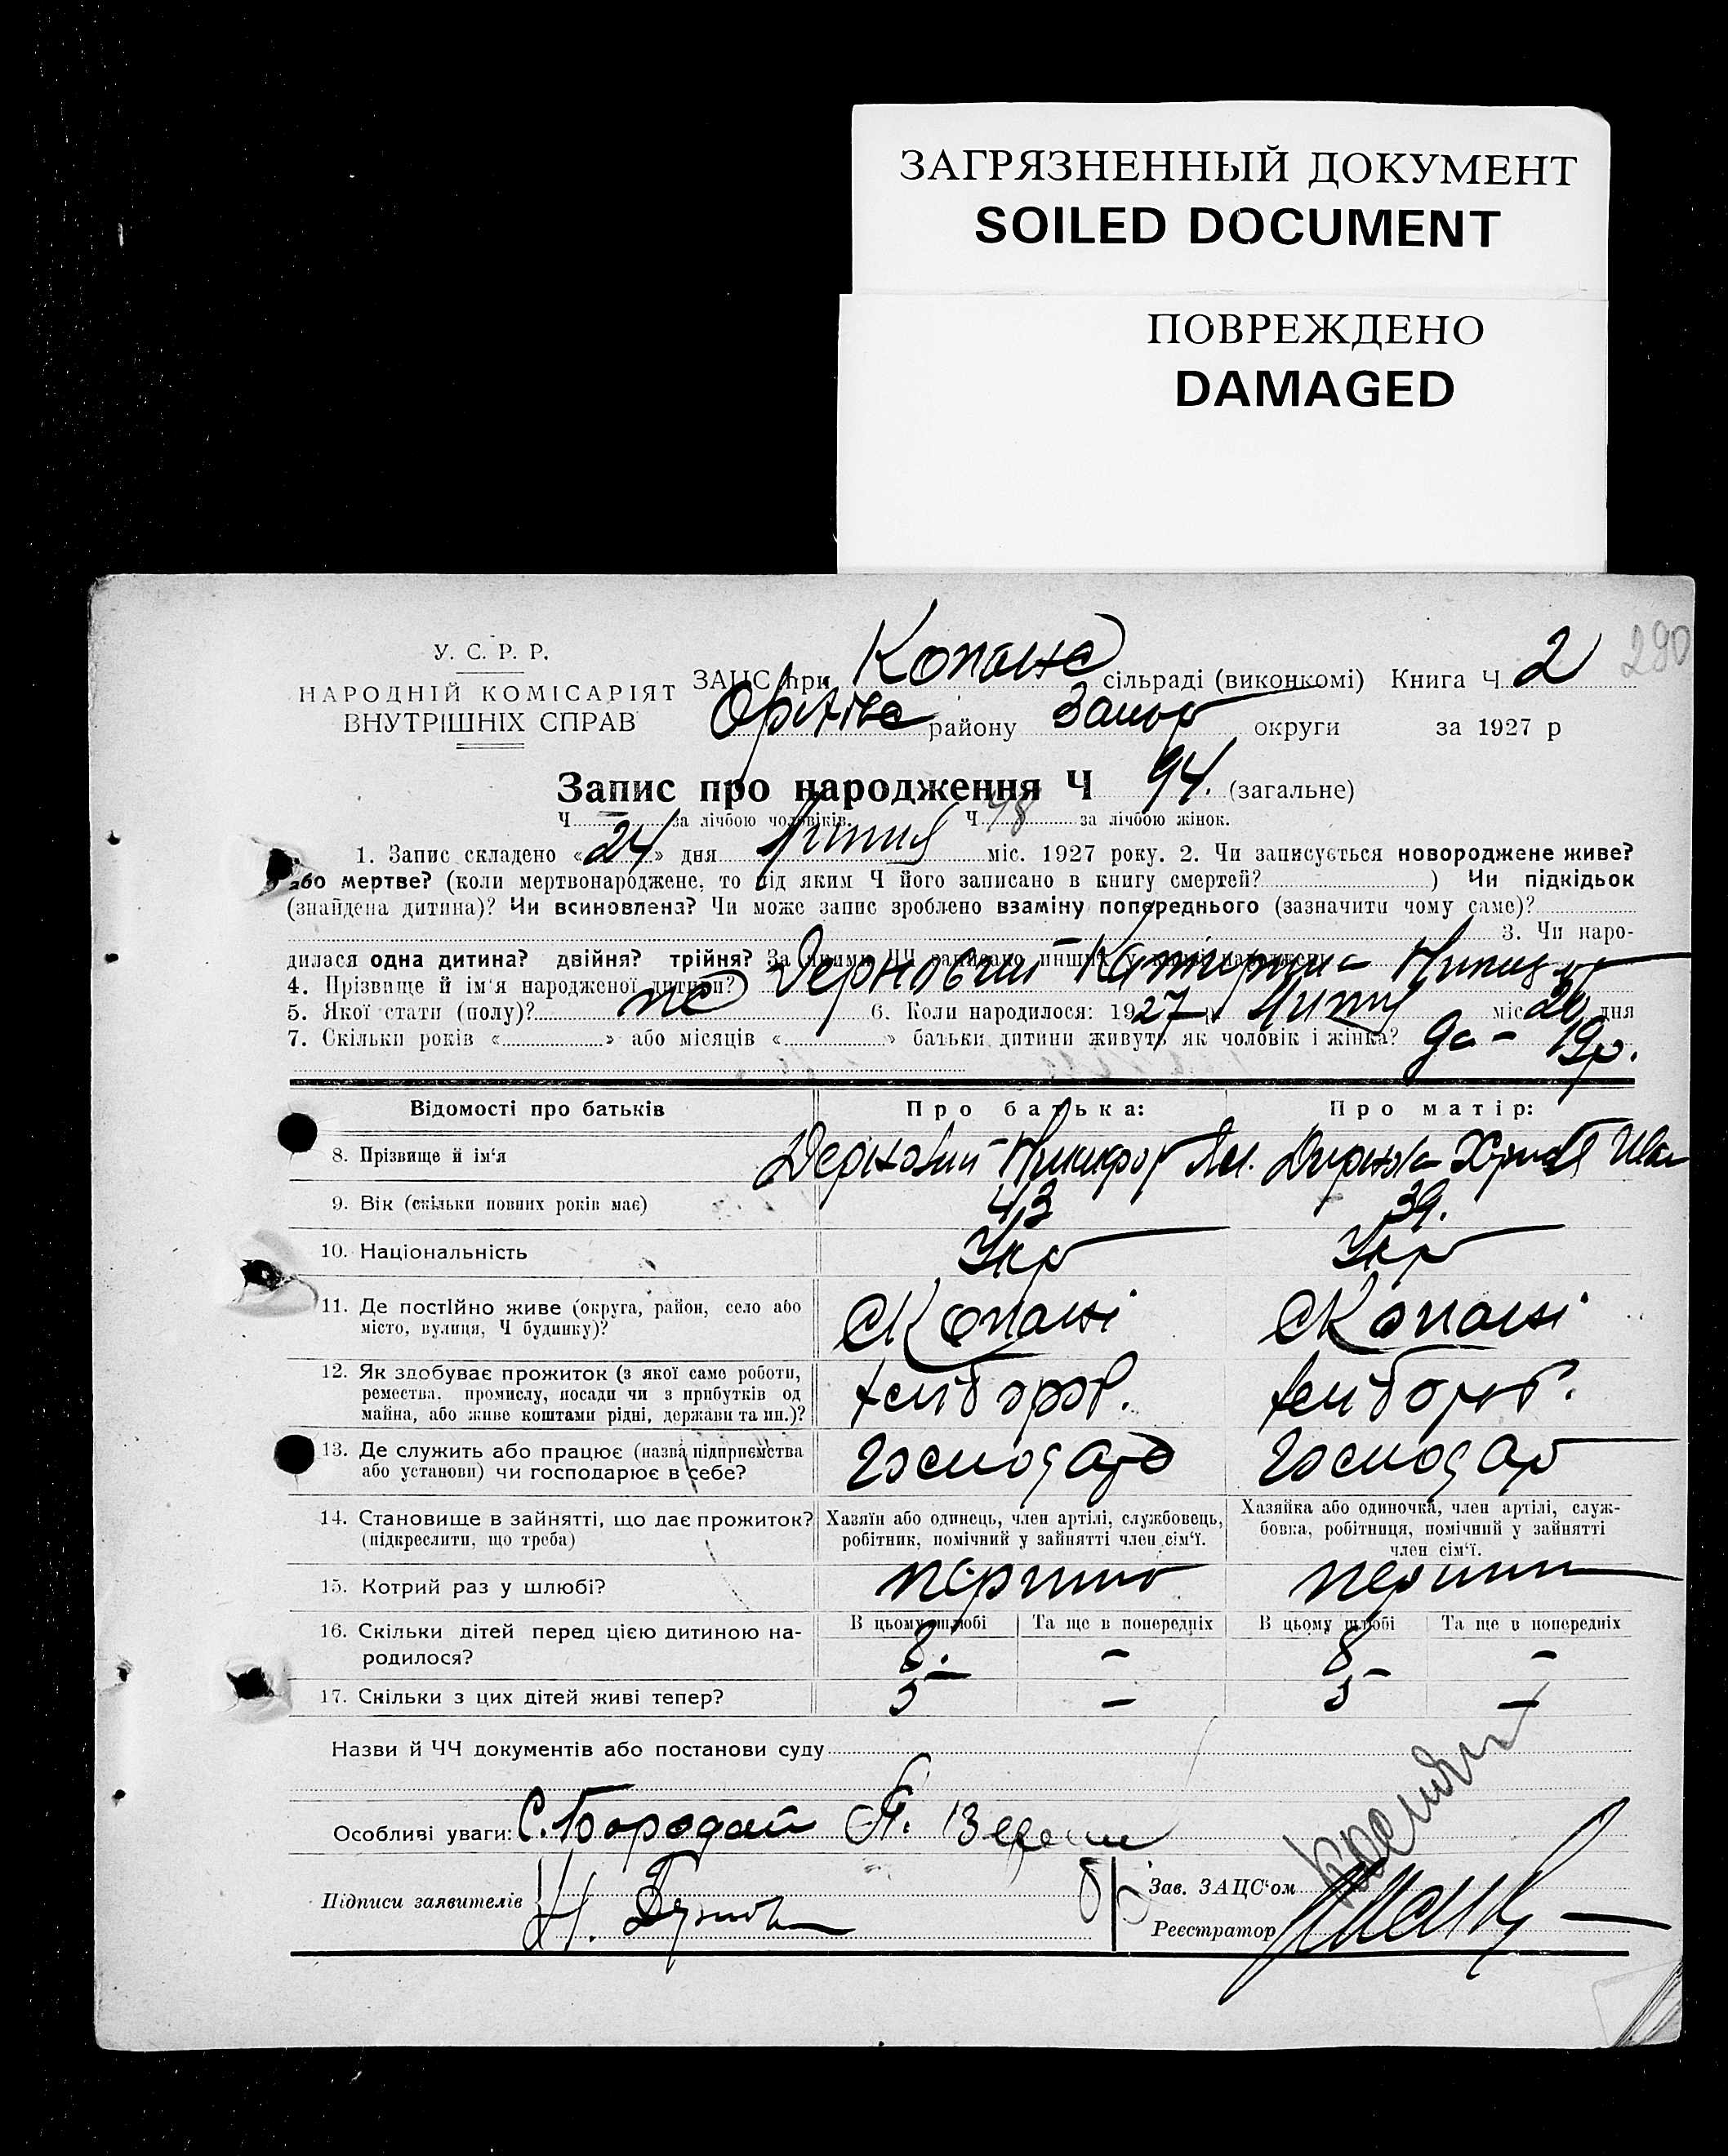 ЗАГРЯЗНЕННЫЙ ДОКУМЕНТ
SOILED DOCUMENT
ПОВРЕЖДЕНО
DAMAGED
290
У. С. Р. Р.
НАРОДНІЙ КОМІСАРІЯТ
ВНУТРІШНІХ СПРАВ
ЗАЦС при Копанс сільраді (виконкомі) Книга Ч 2
Оріхівс району Запор округи за 1927 р
Запис про народження Ч 94. (загальне)
Ч — за лічбою чоловіків. Ч 48 за лічбою жінок.
1. Запис складено «24» дня Липня міс. 1927 року. 2. Чи записується новороджене живе?
або мертве? (коли мертвонароджене, то під яким Ч його записано в книгу смертей? ) Чи підкідьок
(знайдена дитина)? Чи всиновлена? Чи може запис зроблено взаміну попереднього (зазначити чому саме)?
3. Чи наро-
дилася одна дитина? двійня? трійня? За якими ЧЧ записано инших у книзі народжень
4. Прізвище й ім'я народженої дитини?
5. Якої стати (полу)? же 6. Коли народилося: 1927 р Липня міс 20 дня
7. Скільки років « » або місяців « » батьки дитини живуть як чоловік і жінка? 19р.
Відомості про батьків Про батька: Про матір:
8. Прізвище й ім'я
9. Вік (скільки повних років має) 43 39.
10. Національність Укр Укр
11. Де постійно живе (округа, район, село або
місто, вулиця, Ч будинку)? с Копані с Копані
12. Як здобуває прожиток (з якої саме роботи,
ремества, промислу, посади чи з прибутків од
майна, або живе коштами рідні, держави та ин.)? хлібороб. хлібороб.
13. Де служить або працює (назва підприємства
або установи) чи господарює в себе? Господар Господар
14. Становище в зайнятті, що дає прожиток?
(підкреслити, що треба)
Хазяїн або одинець, член артілі, службовець,
робітник, помічний у зайнятті член сім'ї.
Хазяйка або одиночка, член артілі, служ-
бовка, робітниця, помічний у зайнятті
член сім'ї.
15. Котрий раз у шлюбі?
16. Скільки дітей перед цією дитиною на-
родилося?
В цьому шлюбі Та ще в попередніх В цьому шлюбі Та ще в попередніх
8. — 8 —
17. Скільки з цих дітей живі тепер? 5 — 5 —
Назви й ЧЧ документів або постанови суду
Особливі уваги: С. Бородай
Підписи заявителів
Зав. ЗАЦС'ом
Реєстратор